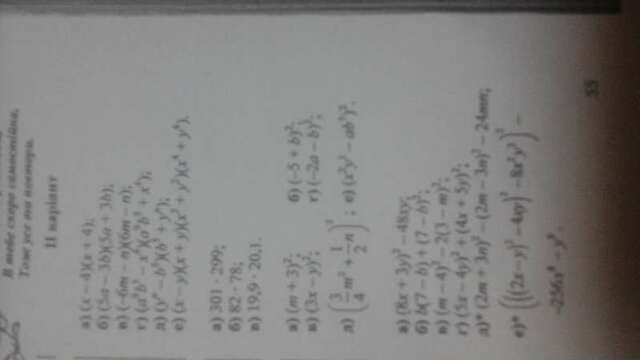 В тебе скоро самостійна,
Тож усе ти повтори.
II варіант
а) (x – 4)(x + 4);
б) (5a – 3b)(5a + 3b);
в) (–6m – n)(6m – n);
г) (a⁹b³ – x⁴)(a⁹b³ + x⁴);
д) (yⁿ – b³)(b³ + yⁿ);
е) (x – y)(x + y)(x² + y²)(x⁴ + y⁴).
а) 301 · 299;
б) 82 · 78;
в) 19,9 · 20,1.
а) (m + 3)²; б) (–5 + b)²;
в) (3x – y)²; г) (–2a – b)²;
д) (3/4 m² + 1/2 n)²; е) (x²y³ – ab³)².
а) (8x + 3y)² – 48xy;
б) b(7 – b) + (7 – b)²;
в) (m – 4)² – 2(3 – m)²;
г) (5x – 4y)² + (4x + 5y)²;
д)* (2m + 3n)² – (2m – 3n)² – 24mn;
е)* (((2x – y)² – 4xy)² – 8x²y²)² –
–256x⁸ – y⁸.
55